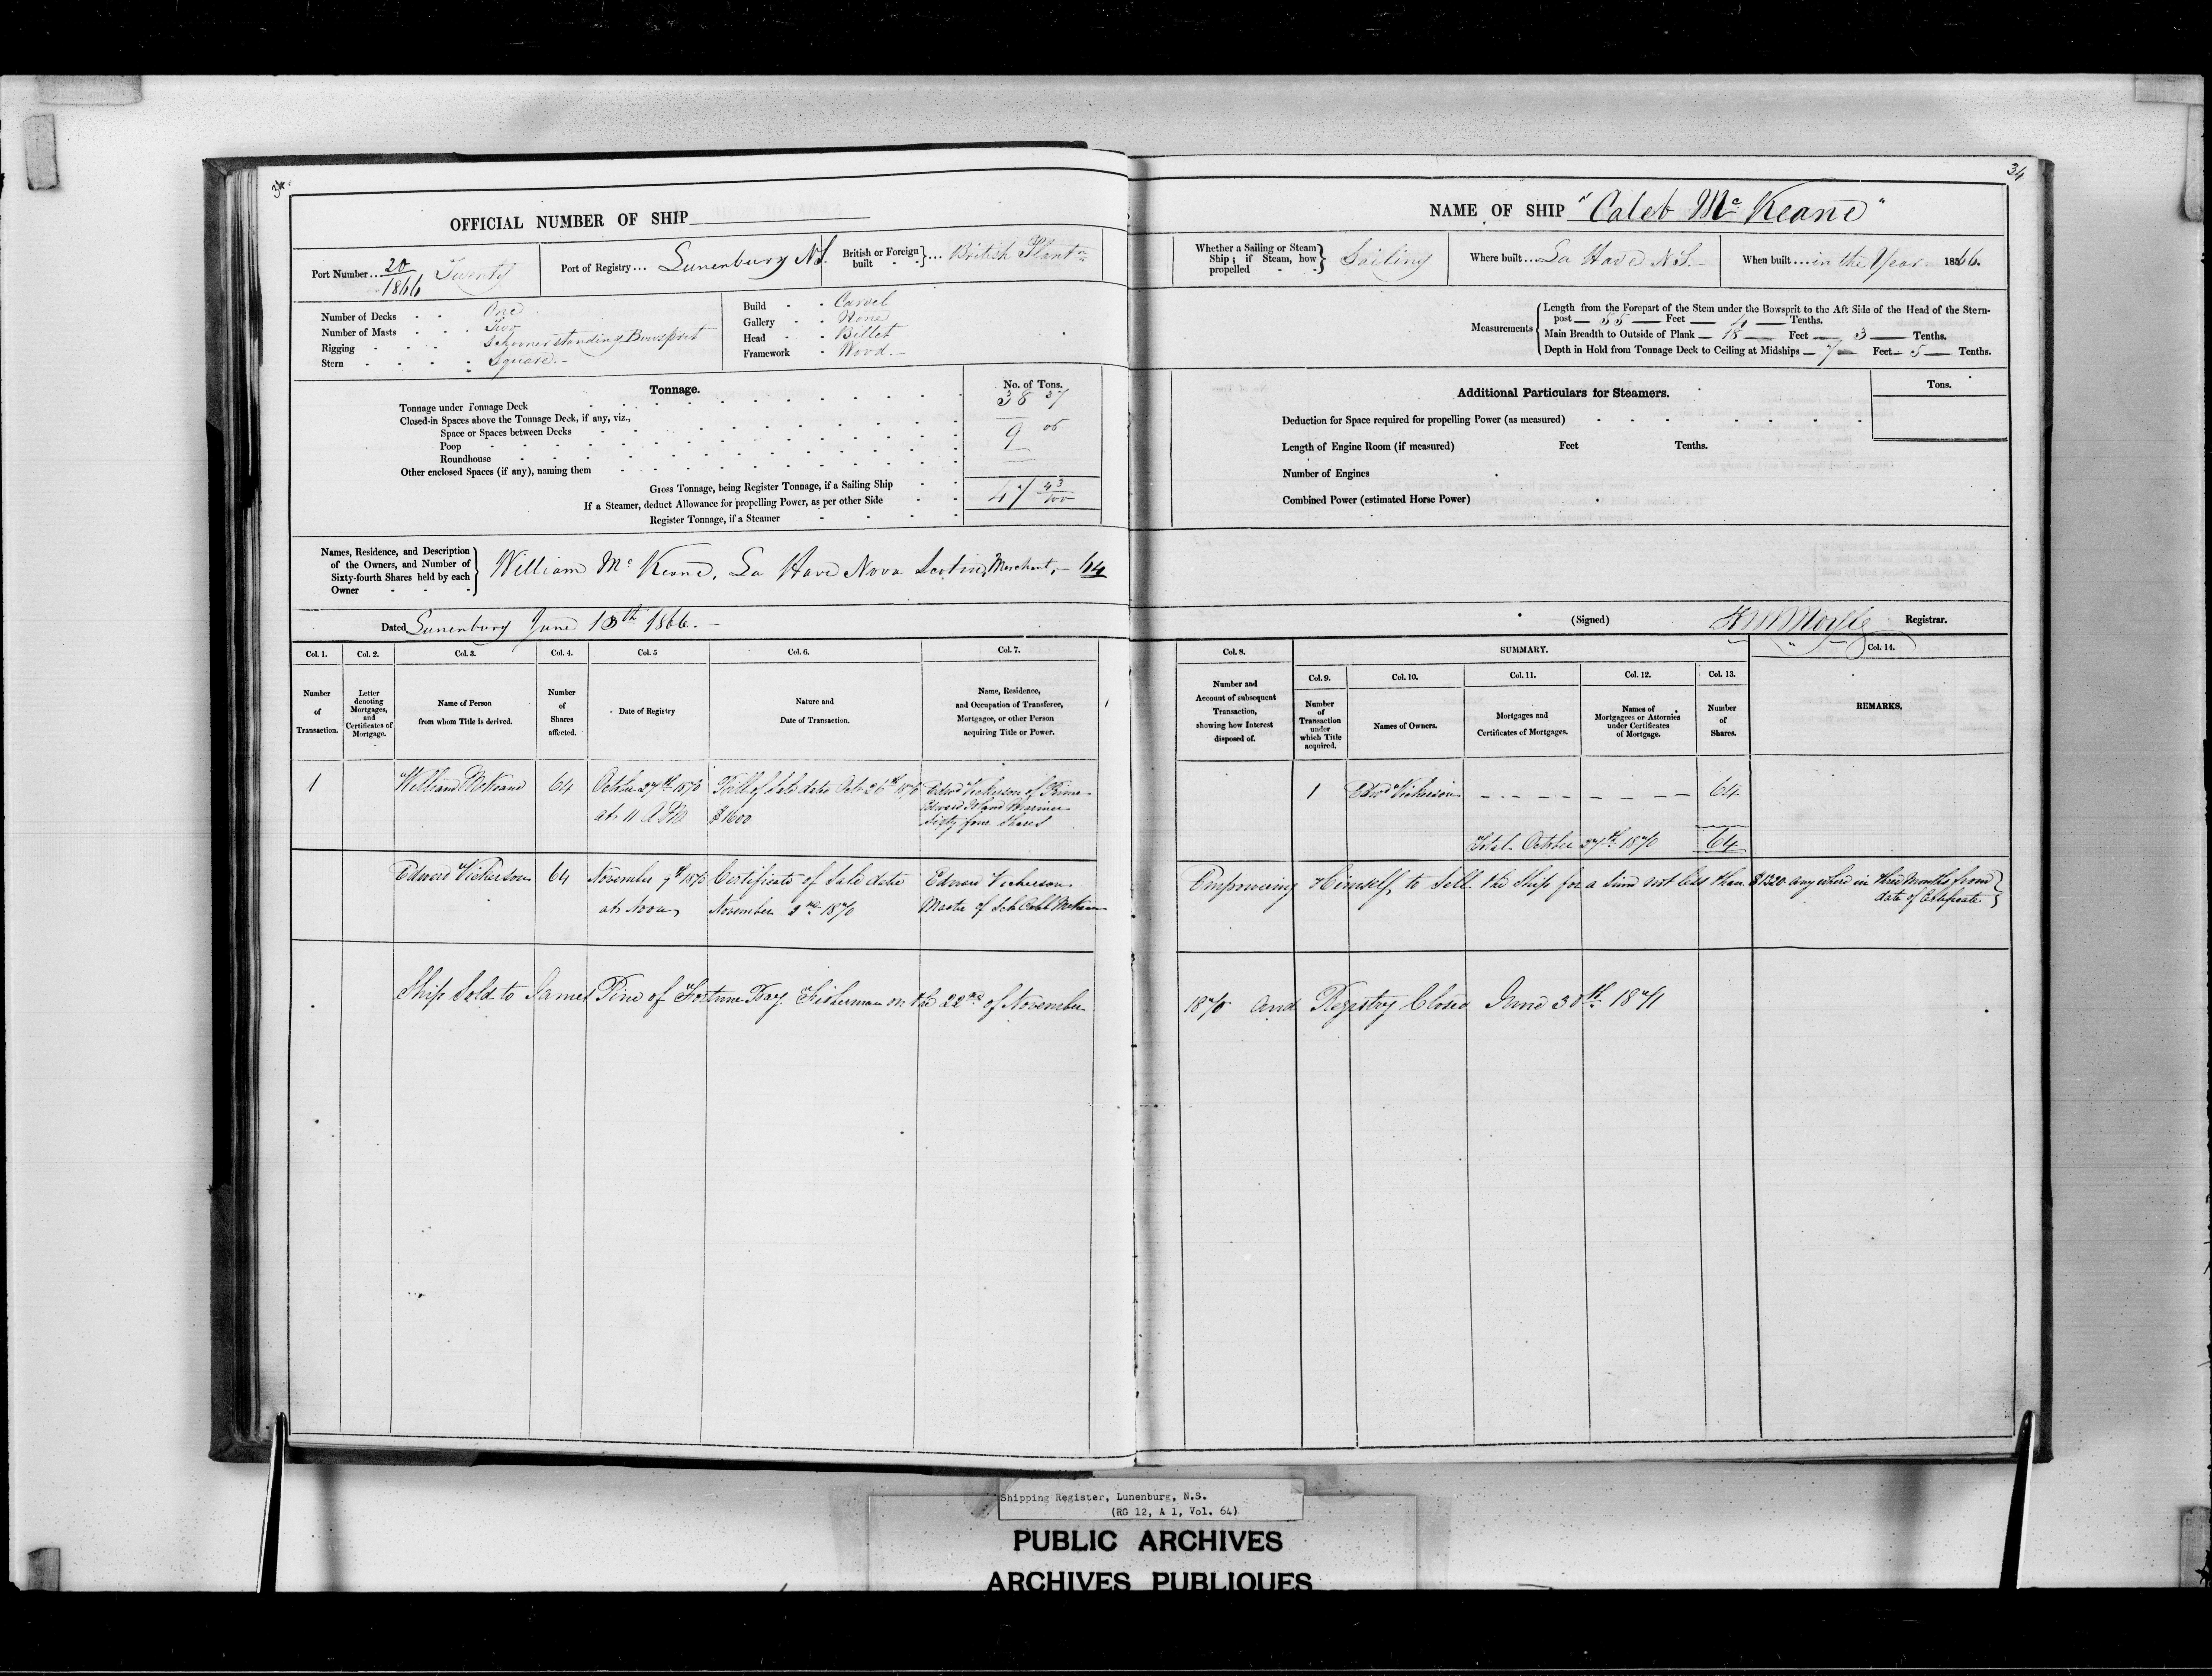 34
34
OFFICIAL NUMBER OF SHIP
Port Number... 20/1866 Twenty
Port of Registry... Lunenburg N.S.
British or Foreign built } ... British Plantn
Number of Decks - - One
Number of Masts - - - Two
Rigging - - - Schooner standing Bowsprit
Stern - - - - Square.-
Build - - Carvel
Gallery - - None
Head - - Billet
Framework - Wood.-
Tonnage.
No. of Tons.
Tonnage under Tonnage Deck 38 37
Closed-in Spaces above the Tonnage Deck, if any, viz.,
Space or Spaces between Decks
Poop 9 06
Roundhouse
Other enclosed Spaces (if any), naming them
Gross Tonnage, being Register Tonnage, if a Sailing Ship 47 43/100
If a Steamer, deduct Allowance for propelling Power, as per other Side
Register Tonnage, if a Steamer
Names, Residence, and Description
of the Owners, and Number of
Sixty-fourth Shares held by each
Owner
William Mc Keane, La Have Nova Scotia, Merchant, - 64
Dated Lunenburg June 13th 1866.-
Col. 1. Col. 2. Col. 3. Col. 4. Col. 5 Col. 6. Col. 7.
Number of Transaction.
Letter denoting Mortgages, and Certificates of Mortgage.
Name of Person from whom Title is derived.
Number of Shares affected.
Date of Registry
Nature and Date of Transaction.
Name, Residence, and Occupation of Transferee, Mortgagee, or other Person acquiring Title or Power.
1 William McKeane 64 October 27th 1870 Bill of Sale date Octr 26th 1870 Edwd Vickerson of Prince
at 11 A.M. $1600 Edward Island Mariner
Sixty four Shares
Edward Vickerson 64 November 9th 1870 Certificate of Sale date Edward Vickerson
at Noon November 1870 Master of Sch Caleb McKeane
Ship Sold to James Pine of Fortune Bay Fisherman on the 22nd of November
NAME OF SHIP "Caleb Mc Keane"
Whether a Sailing or Steam
Ship; if Steam, how
propelled - - } Sailing
Where built... La Have N.S.-
When built... in the Year 1866.
Measurements
Length from the Forepart of the Stem under the Bowsprit to the Aft Side of the Head of the Stern-
post — 55 — Feet — — Tenths.
Main Breadth to Outside of Plank — 18 — Feet — 3 — Tenths.
Depth in Hold from Tonnage Deck to Ceiling at Midships — 7 — Feet — 5 — Tenths.
Additional Particulars for Steamers.
Tons.
Deduction for Space required for propelling Power (as measured)
Length of Engine Room (if measured) Feet Tenths.
Number of Engines
Combined Power (estimated Horse Power)
(Signed) Registrar.
Col. 8. SUMMARY. Col. 14.
Col. 9. Col. 10. Col. 11. Col. 12. Col. 13.
Number and Account of subsequent Transaction, showing how Interest disposed of.
Number of Transaction under which Title acquired.
Names of Owners.
Mortgages and Certificates of Mortgages.
Names of Mortgagees or Attornies under Certificates of Mortgage.
Number of Shares.
REMARKS.
1 Edwd Vickerson - - - - - - - - 64
Total October 27th 1870 64
Empowering Himself to Sell the Ship for a Sum not less than $1320 any where in three Months from
date of Certificate
1870 and Registry Closed June 30th 1871
Shipping Register, Lunenburg, N.S.
(RG 12, A 1, Vol. 64)
PUBLIC ARCHIVES
ARCHIVES PUBLIQUES